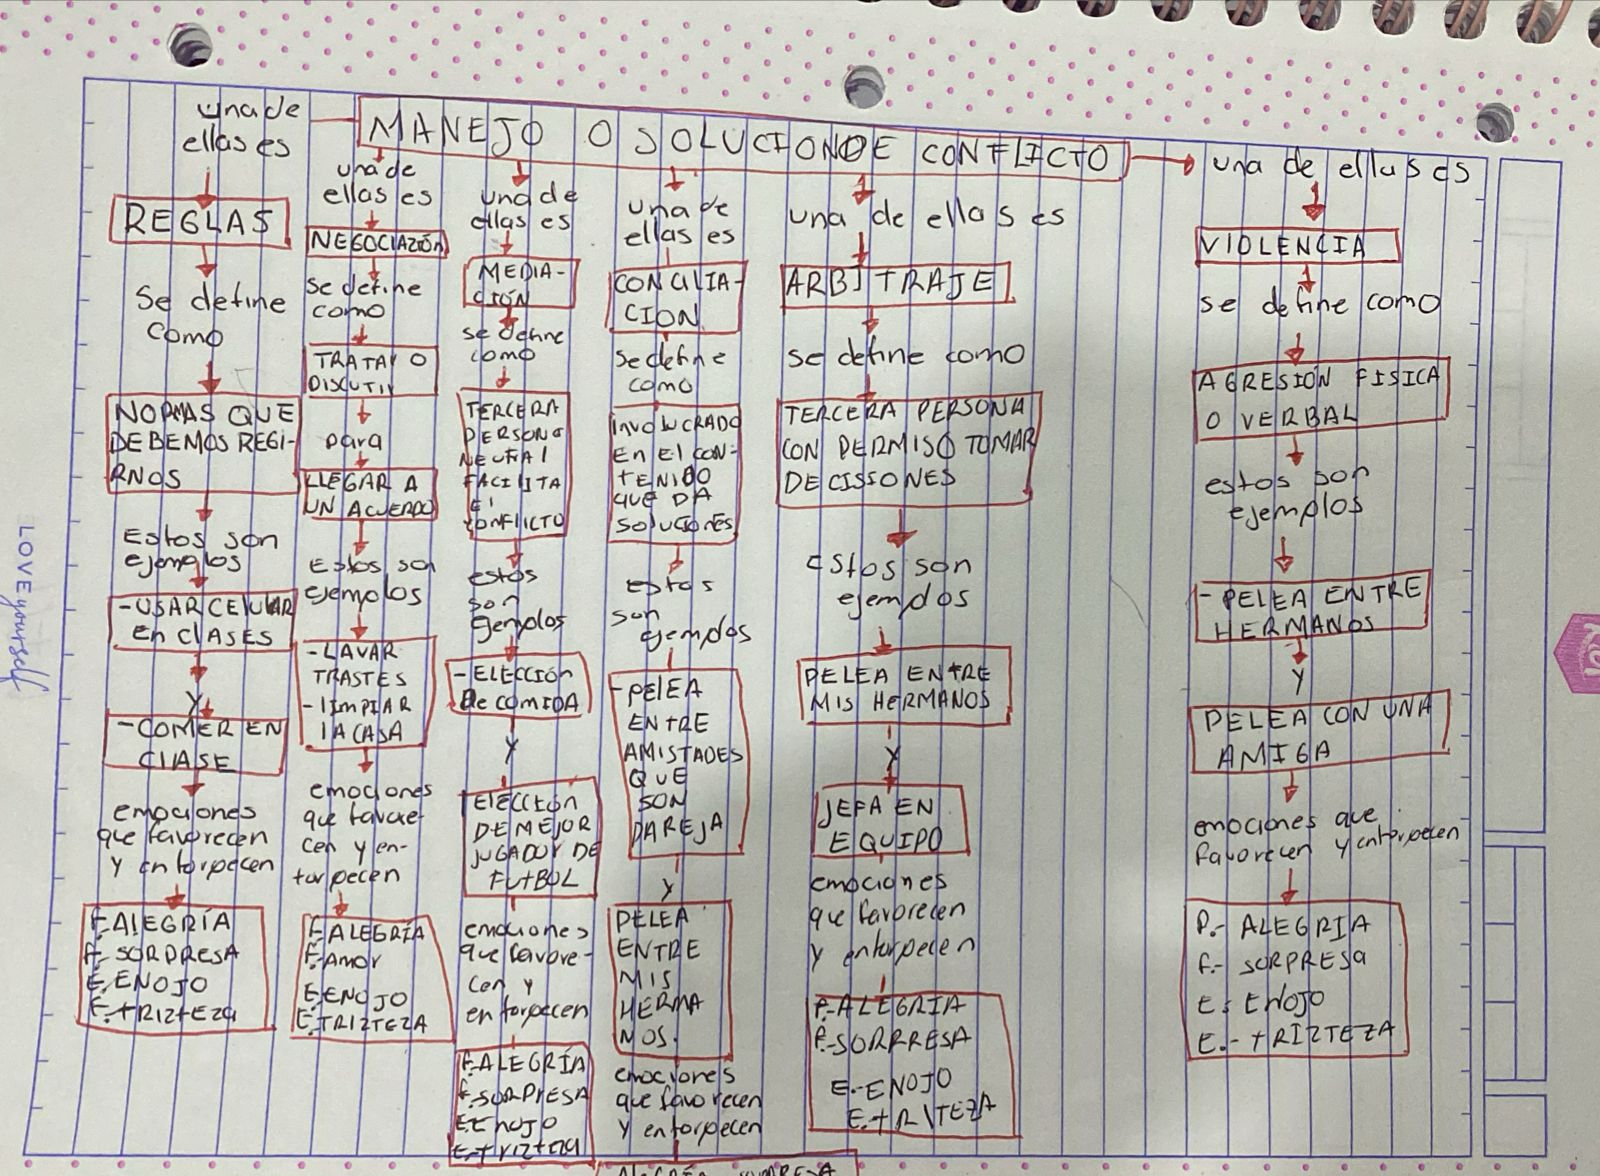 MANEJO O SOLUCION DE CONFLICTO
una de
ellas es
REGLAS
Se define
como
NORMAS QUE
DEBEMOS REGI-
RNOS
Estos son
ejemplos
- USAR CELULAR
En CLASES
Y
- COMER EN
CLASE
emociones
que favorecen
y entorpecen
F. ALEGRÍA
F. SORPRESA
E. ENOJO
E. TRIZTEZA
una de
ellas es
NEGOCIAZIÓN
se define
como
TRATAR O
DISCUTIR
para
LLEGAR A
UN ACUERDO
Estos son
ejemplos
- LAVAR
TRASTES
- LIMPIAR
LA CASA
emociones
que favore-
cen y en-
torpecen
F. ALEGRÍA
F. Amor
E. ENOJO
E. TRIZTEZA
una de
ellas es
MEDIA-
CIÓN
se define
como
TERCERA
PERSONA
NEUTRAL
FACILITA
El
CONFLICTO
estos
son
ejemplos
- ELECCIÓN
De COMIDA
Y
ELECCIÓN
DE MEJOR
JUGADOR DE
FUTBOL
emociones
que favore-
cen y
entorpecen
F. ALEGRÍA
F. SORPRESA
E. Enojo
E. trizteza
una de
ellas es
CONCILIA-
CION
se define
como
INVOLUCRADO
En El CON-
TENIDO
QUE DA
SOLUCIONES
estos
son
ejemplos
- PELEA
ENTRE
AMISTADES
QUE
SON
PAREJA
Y
PELEA
ENTRE
MIS
HERMA
NOS.
emociones
que favorecen
y entorpecen
ALEGRÍA SORPRESA
una de ellas es
ARBITRAJE
se define como
TERCERA PERSONA
CON PERMISO TOMAR
DECISSIONES
Estos son
ejemplos
PELEA ENTRE
MIS HERMANOS
Y
JEFA EN
EQUIPO
emociones
que favorecen
y entorpecen
F.-ALEGRIA
F.-SORRRESA
E.-ENOJO
E. TRITEZA
una de ellas es
VIOLENCIA
se define como
AGRESIÓN FISICA
O VERBAL
estos son
ejemplos
- PELEA ENTRE
HERMANOS
Y
PELEA CON UNA
AMIGA
emociones que
favorecen y entorpecen
F.- ALEGRIA
F.- SORPRESA
E.- ENOJO
E.- TRIZTEZA
LOVE yourself